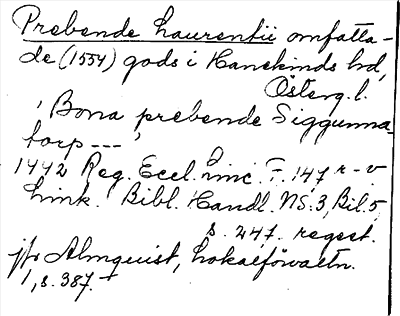 Prebende Laurentii omfatta-
de (1554) gods i Hanekinds hd,
Österg. l.
'Bona prebende Siggunna
torp --- '
1442 Reg. Eccl. Linc F. 147 r-v
Link. Bibl. Handl. NS. 3, Bil. 5,
s. 247. regest.
jfr Almquist, Lokalförvaltn.
1, s. 387.